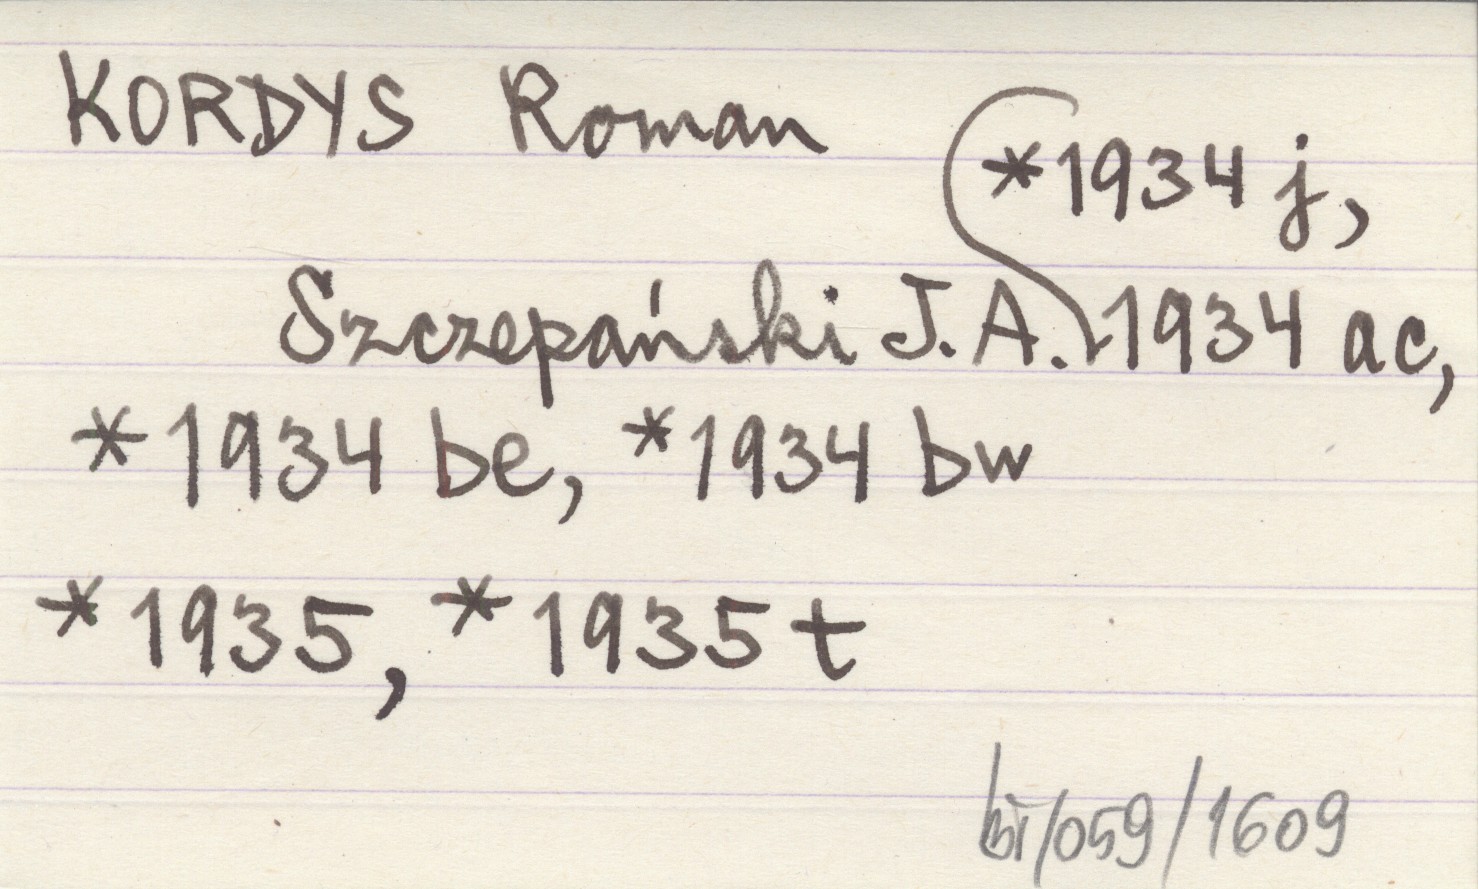 KORDYS Roman
*1934 j,
Szczepański J.A. 1934 ac,
*1934 be, *1934 bw
*1935, *1935 t
bi/059/1609